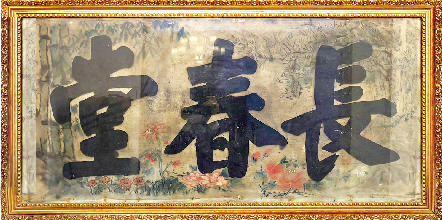 長春堂